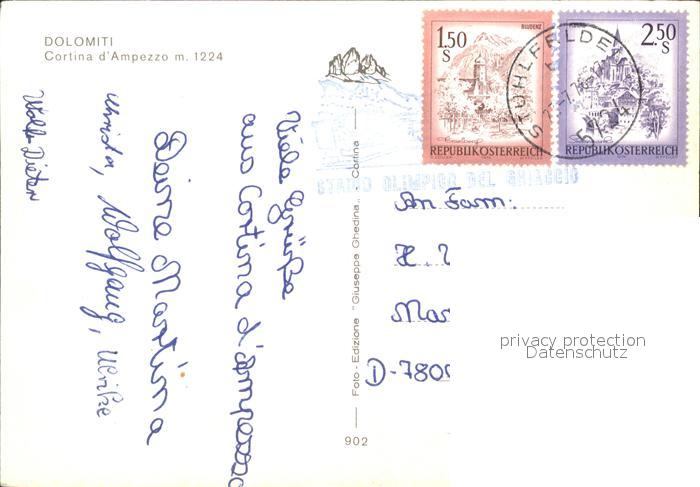 DOLOMITI
Cortina d'Ampezzo m. 1224
Viele Grüße
aus Cortina d'Ampezzo
Deine Martina
Christa, Wolfgang, Ulrike
Wolf-Dieter
Foto - Edizione "Giuseppe Ghedina" Cortina
902
1.50
S
BLUDENZ
REPUBLIK ÖSTERREICH
2.50
S
REPUBLIK ÖSTERREICH
STUHLFELDEN
5724
STADIO OLIMPICO DEL GHIACCIO
An Fam:
H.
D-780
privacy protection
Datenschutz